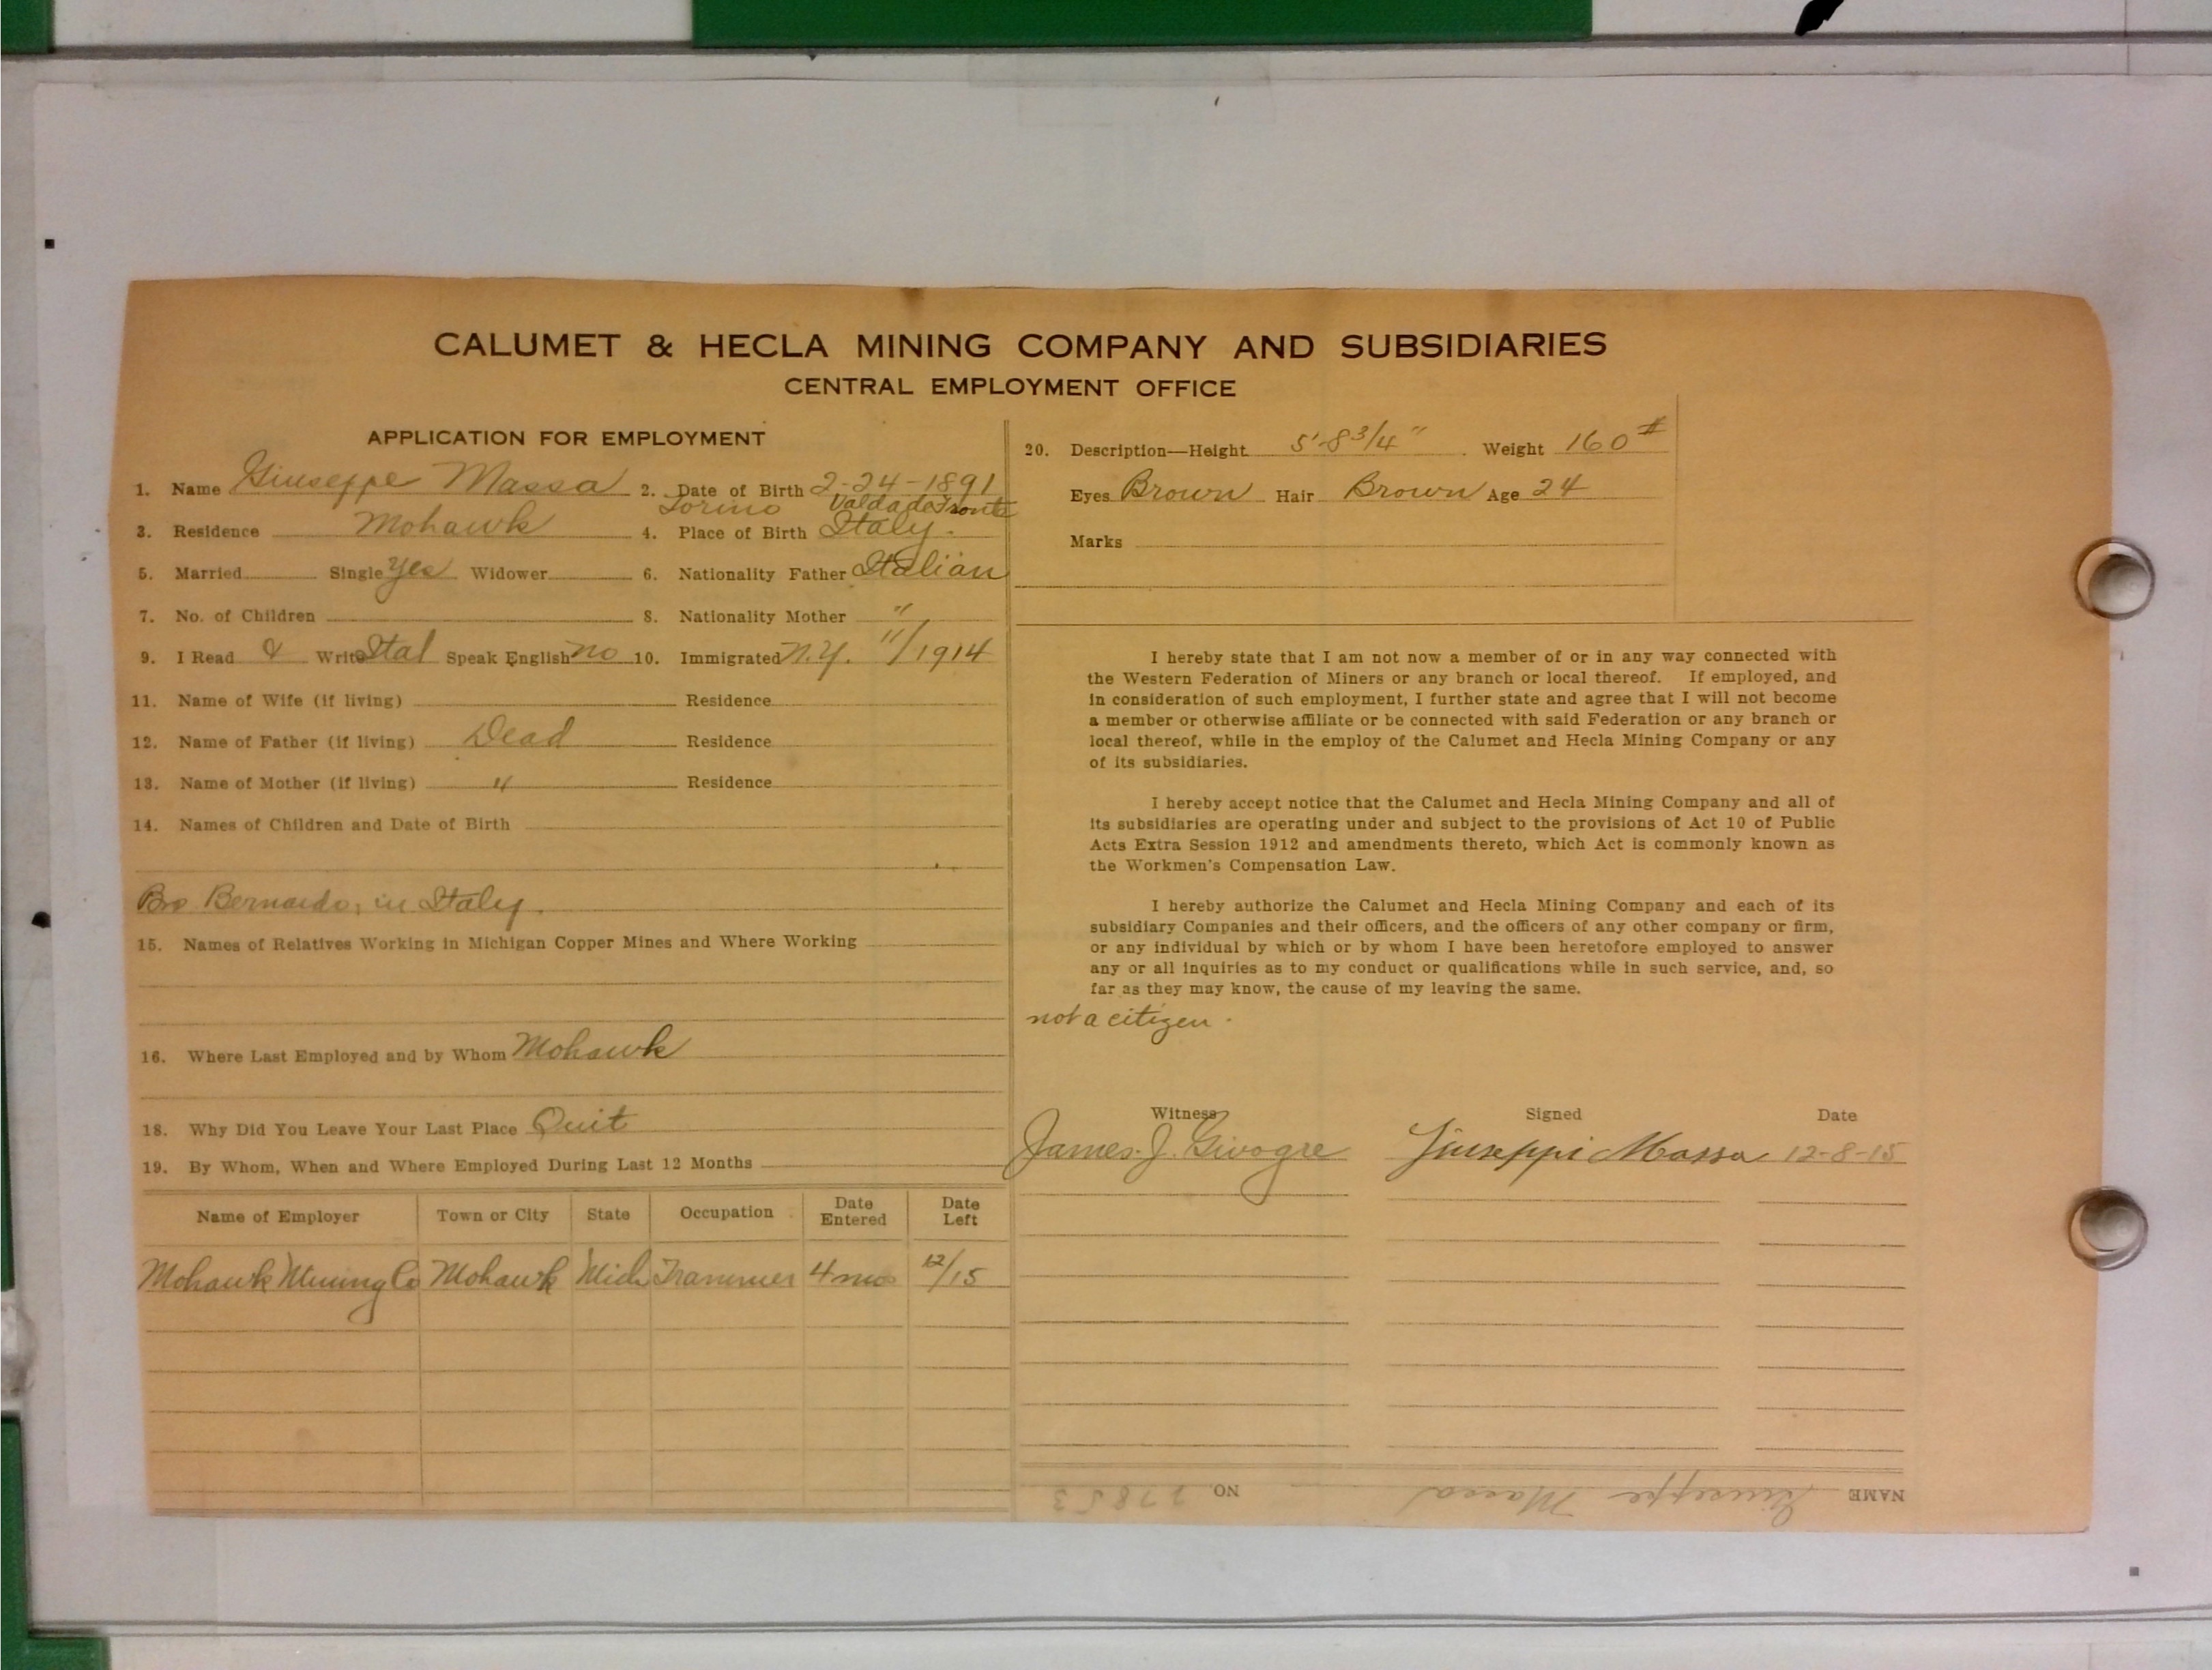 CALUMET & HECLA MINING COMPANY AND SUBSIDIARIES
CENTRAL EMPLOYMENT OFFICE
APPLICATION FOR EMPLOYMENT
1. Name Giuseppe Massa 2. Date of Birth 2-24-1891
Torino
3. Residence Mohawk 4. Place of Birth Italy.
5. Married Single Yes Widower 6. Nationality Father Italian
7. No. of Children 8. Nationality Mother "
9. I Read & Write Ital Speak English no 10. Immigrated N.Y. 11/1914
11. Name of Wife (if living) Residence
12. Name of Father (if living) Dead Residence
13. Name of Mother (if living) " Residence
14. Names of Children and Date of Birth
Bro Bernardo, in Italy.
15. Names of Relatives Working in Michigan Copper Mines and Where Working
16. Where Last Employed and by Whom Mohawk
18. Why Did You Leave Your Last Place Quit
19. By Whom, When and Where Employed During Last 12 Months
Name of Employer Town or City State Occupation Date Entered Date Left
Mohawk Mining Co Mohawk Mich Trammer 4 mos 12/15
20. Description—Height 5'-8 3/4" Weight 160#
Eyes Brown Hair Brown Age 24
Marks
I hereby state that I am not now a member of or in any way connected with
the Western Federation of Miners or any branch or local thereof. If employed, and
in consideration of such employment, I further state and agree that I will not become
a member or otherwise affiliate or be connected with said Federation or any branch or
local thereof, while in the employ of the Calumet and Hecla Mining Company or any
of its subsidiaries.
I hereby accept notice that the Calumet and Hecla Mining Company and all of
its subsidiaries are operating under and subject to the provisions of Act 10 of Public
Acts Extra Session 1912 and amendments thereto, which Act is commonly known as
the Workmen's Compensation Law.
I hereby authorize the Calumet and Hecla Mining Company and each of its
subsidiary Companies and their officers, and the officers of any other company or firm,
or any individual by which or by whom I have been heretofore employed to answer
any or all inquiries as to my conduct or qualifications while in such service, and, so
far as they may know, the cause of my leaving the same.
not a citizen.
Witness Signed Date
James. J. Givogre Giuseppi Massa 12-8-15
NAME Giuseppe Massa NO. 27853